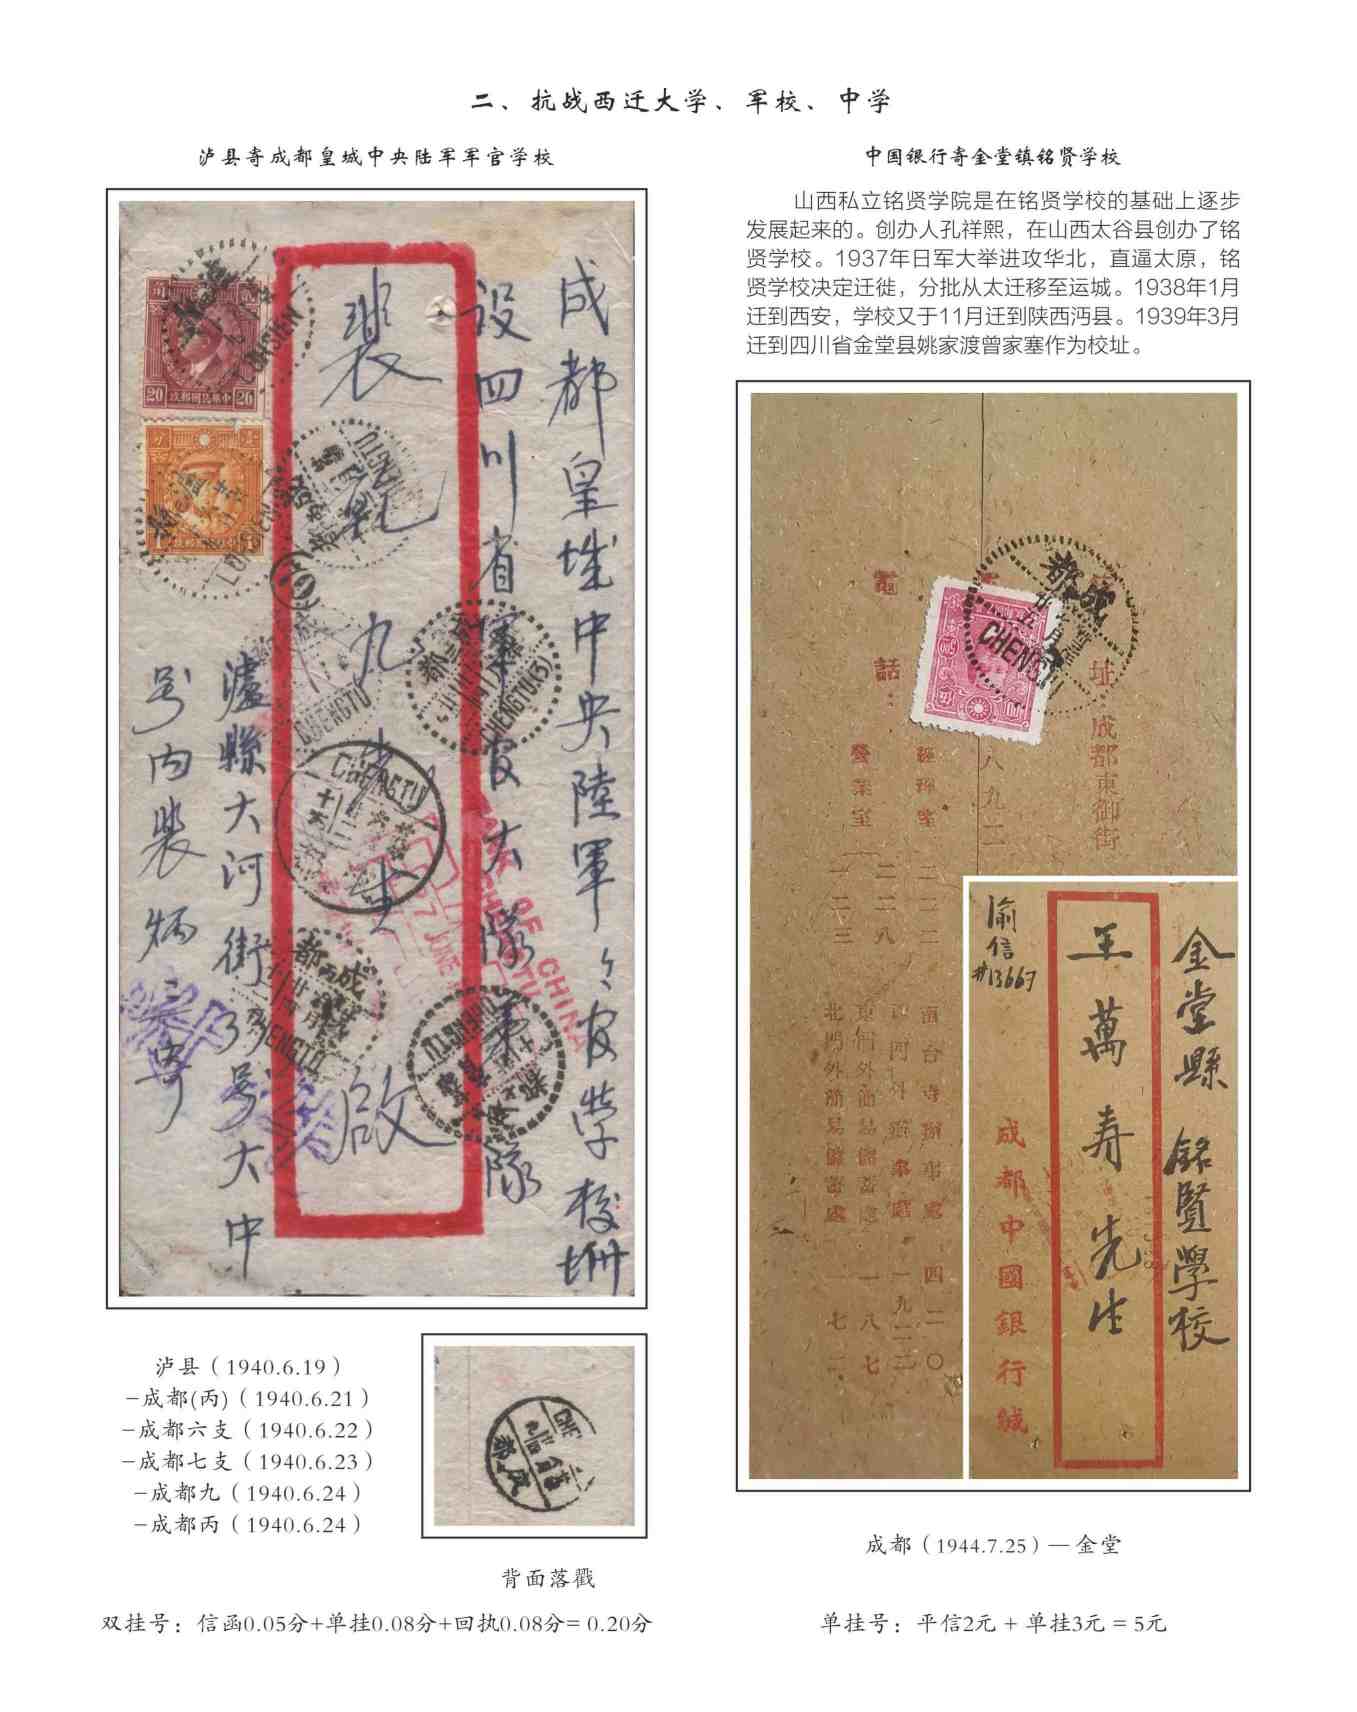 二、抗战西迁大学、军校、中学
泸县寄成都皇城中央陆军军官学校
成都皇城中央陸軍々官学校珊
设四川省軍官大隊第 隊
裴乾九少士啟
瀘縣大河街33号大中
号内裴炳 寄
20
20
LUHSIEN
LUHSIEN
CHENGTU
CHENGTU
CHENGTU(3)
CHENGTU
成都
CHENGTU
CHENGTU
BANK OF CHINA
CHENGTU
7 JUNE
泸县（1940.6.19）
–成都(丙)（1940.6.21）
–成都六支（1940.6.22）
–成都七支（1940.6.23）
–成都九（1940.6.24）
–成都丙（1940.6.24）
成都
背面落戳
双挂号：信函0.05分+单挂0.08分+回执0.08分= 0.20分
中国银行寄金堂镇铭贤学校
山西私立铭贤学院是在铭贤学校的基础上逐步
发展起来的。创办人孔祥熙，在山西太谷县创办了铭
贤学校。1937年日军大举进攻华北，直逼太原，铭
贤学校决定迁徙，分批从太迁移至运城。1938年1月
迁到西安，学校又于11月迁到陕西沔县。1939年3月
迁到四川省金堂县姚家渡曾家塞作为校址。
成都
CHENGTU
址：成都東御街
八九二
電話：
經理室 二二二
營業室 一二三
二二八
南台寺辦事處 四二〇
西門外辦事處 一九二二
東門外簡易儲蓄處 一八七
北門外簡易儲蓄處 一七二
金堂縣 銘賢學校
王萬寿先生
渝信
#13667
成都中國銀行緘
成都（1944.7.25）— 金堂
单挂号：平信2元 + 单挂3元 = 5元